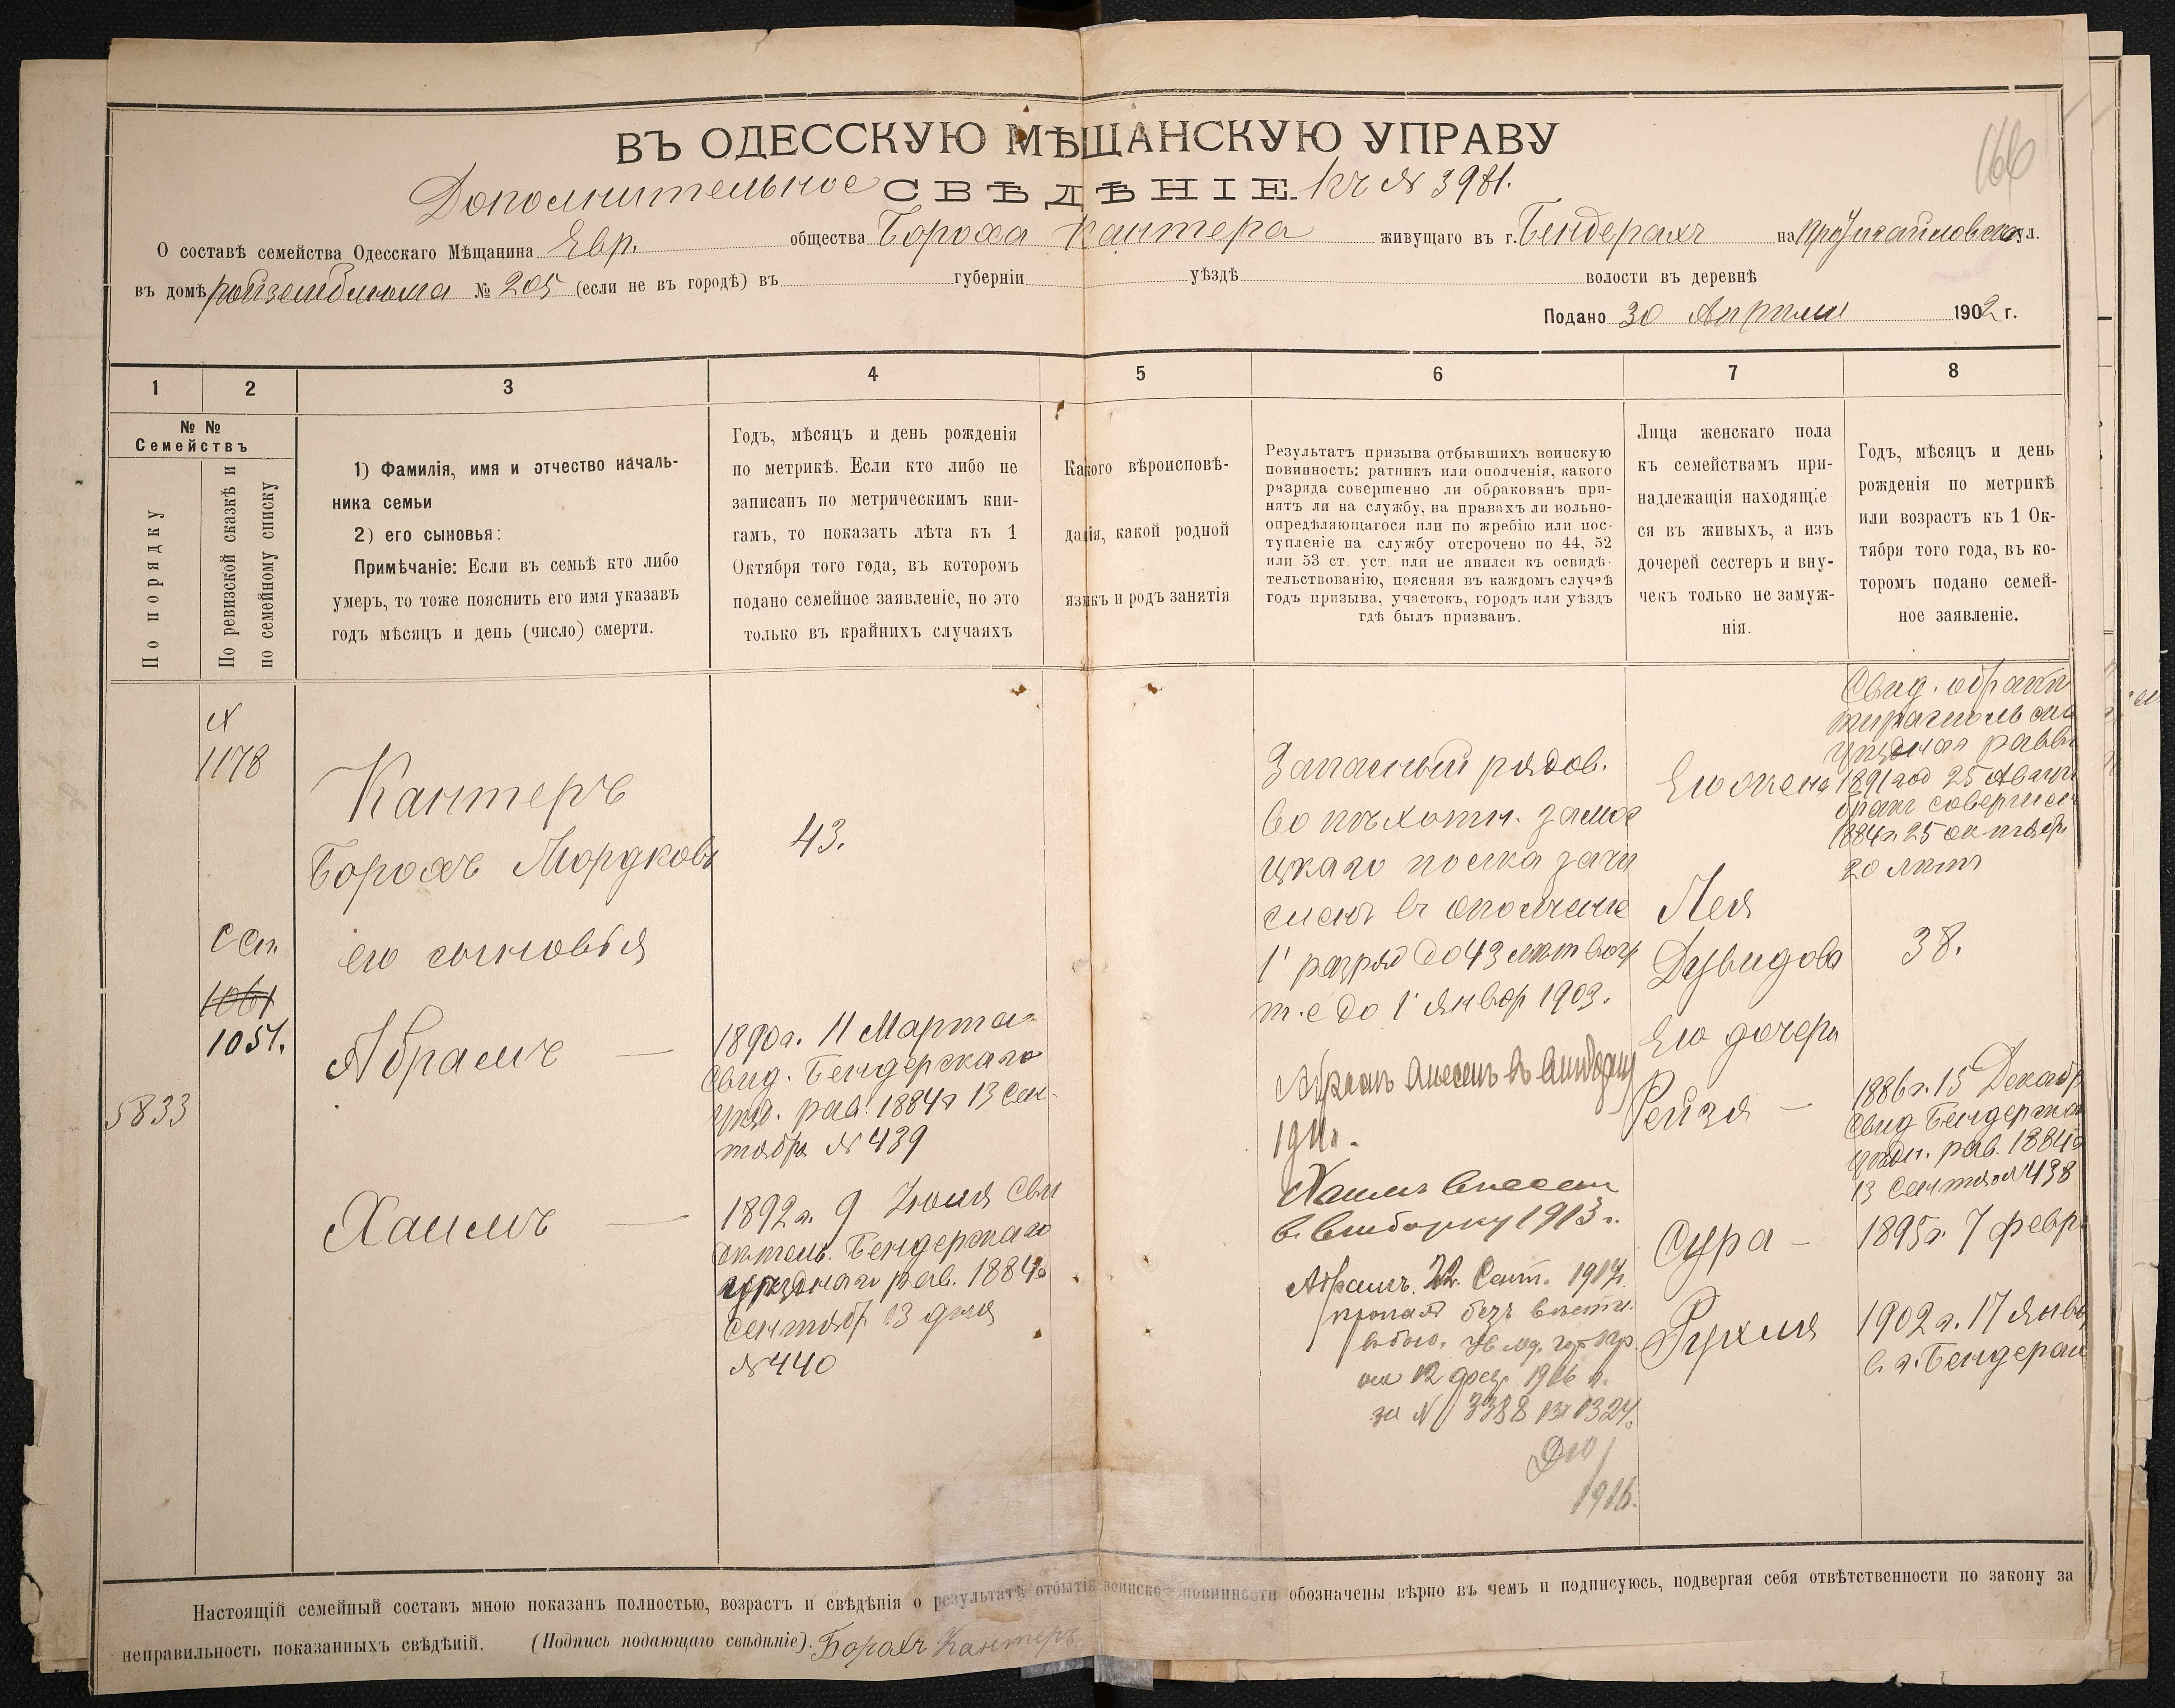 166
ВЪ ОДЕССКУЮ МѢЩАНСКУЮ УПРАВУ
Дополнительное СВѢДѢНІЕ. къ № 3981.
О составѣ семейства Одесскаго Мѣщанина Евр. общества Бороха Кантера живущаго въ г. Бендерахъ на ул.
въ домѣ № 205 (если не въ городѣ) въ губерніи уѣздѣ волости въ деревнѣ
Подано 30 Апрѣля 1902 г.
1 2 3 4 5 6 7 8
№ №
Семействъ
По порядку
По ревизской сказкѣ и
по семейному списку
1) Фамилія, имя и отчество началь-
ника семьи
2) его сыновья:
Примѣчаніе: Если въ семьѣ кто либо
умеръ, то тоже пояснить его имя указавъ
годъ мѣсяцъ и день (число) смерти.
Годъ, мѣсяцъ и день рожденія
по метрикѣ. Если кто либо не
записанъ по метрическимъ кни-
гамъ, то показать лѣта къ 1
Октября того года, въ которомъ
подано семейное заявленіе, но это
только въ крайнихъ случаяхъ
Какого вѣроисповѣ-
данія, какой родной
языкъ и родъ занятія
Результатъ призыва отбывшихъ воинскую
повинность: ратникъ или ополченія, какого
разряда совершенно ли обракованъ при-
нятъ ли на службу, на правахъ ли вольно-
опредѣляющагося или по жребію или пос-
тупленіе на службу отсрочено по 44, 52
или 53 ст. уст. или не явился къ освидѣ-
тельствованію, поясняя въ каждомъ случаѣ
годъ призыва, участокъ, городъ или уѣздъ
гдѣ былъ призванъ.
Лица женскаго пола
къ семействамъ при-
надлежащія находящіе
ся въ живыхъ, а изъ
дочерей сестеръ и вну-
чекъ только не замуж-
нія.
Годъ, мѣсяцъ и день
рожденія по метрикѣ
или возрастъ къ 1 Ок-
тября того года, въ ко-
торомъ подано семей-
ное заявленіе.
5833
№
1178
1061
1051.
Кантеръ
Борохъ Мордковъ
его сыновья
Абрамъ —
Хаимъ —
43.
1890 г. 11 Марта
Свид. Бендерскаго
уѣзд. рав. 1884 г 13 Сен-
тября № 439
1892 г. 9 Іюля Сви
дѣтель. Бендерскаго
уѣзднаго рав. 1884 г
Сентябр 13 дня
№ 440
Запасный рядов.
во пѣхотн. Замос
цкаго полка зачи
сленъ в ополченіе
1 разряд до 43 лѣт
т. е до 1 Январ 1903.
Абрамъ внесенъ въ выборку
1911 г.
Хаимъ внесен
в. выборку 1913 г.
Абрамъ. 22. Сент. 1914 г.
пропалъ безъ вѣсти.
в бою.
1916 г.
за № 3388
1916.
Его жена
Лея
Дувидова
Его дочери
Рейзя —
Сура —
Рухля
Свид. о бракѣ
тираспольска
уѣзднаго равви
1891 год 25 Август
бракъ совершен
1884 г. 25 октябр
20 лѣтъ
38.
1886 г. 15 Декабр
Свид Бендерска
уѣздн. рав. 1884 г
13 Сентяб № 438
1895 г. 7 февр.
1902 г. 17 Янва
в. г. Бендерах
Настоящій семейный составъ мною показанъ полностью, возрастъ и свѣдѣнія о результатѣ отбытія воинской повинности обозначены вѣрно въ чемъ и подписуюсь, подвергая себя отвѣтственности по закону за
неправильность показанныхъ свѣдѣній. (Подпись подающаго свѣдѣніе). Борохъ Кантеръ